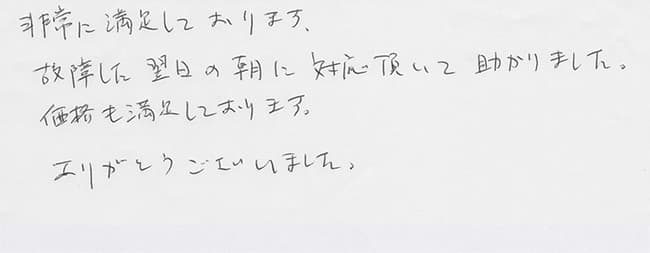 非常に満足しております。
故障した翌日の朝に対応頂いて助かりました。
価格も満足しております。
ありがとうございました。